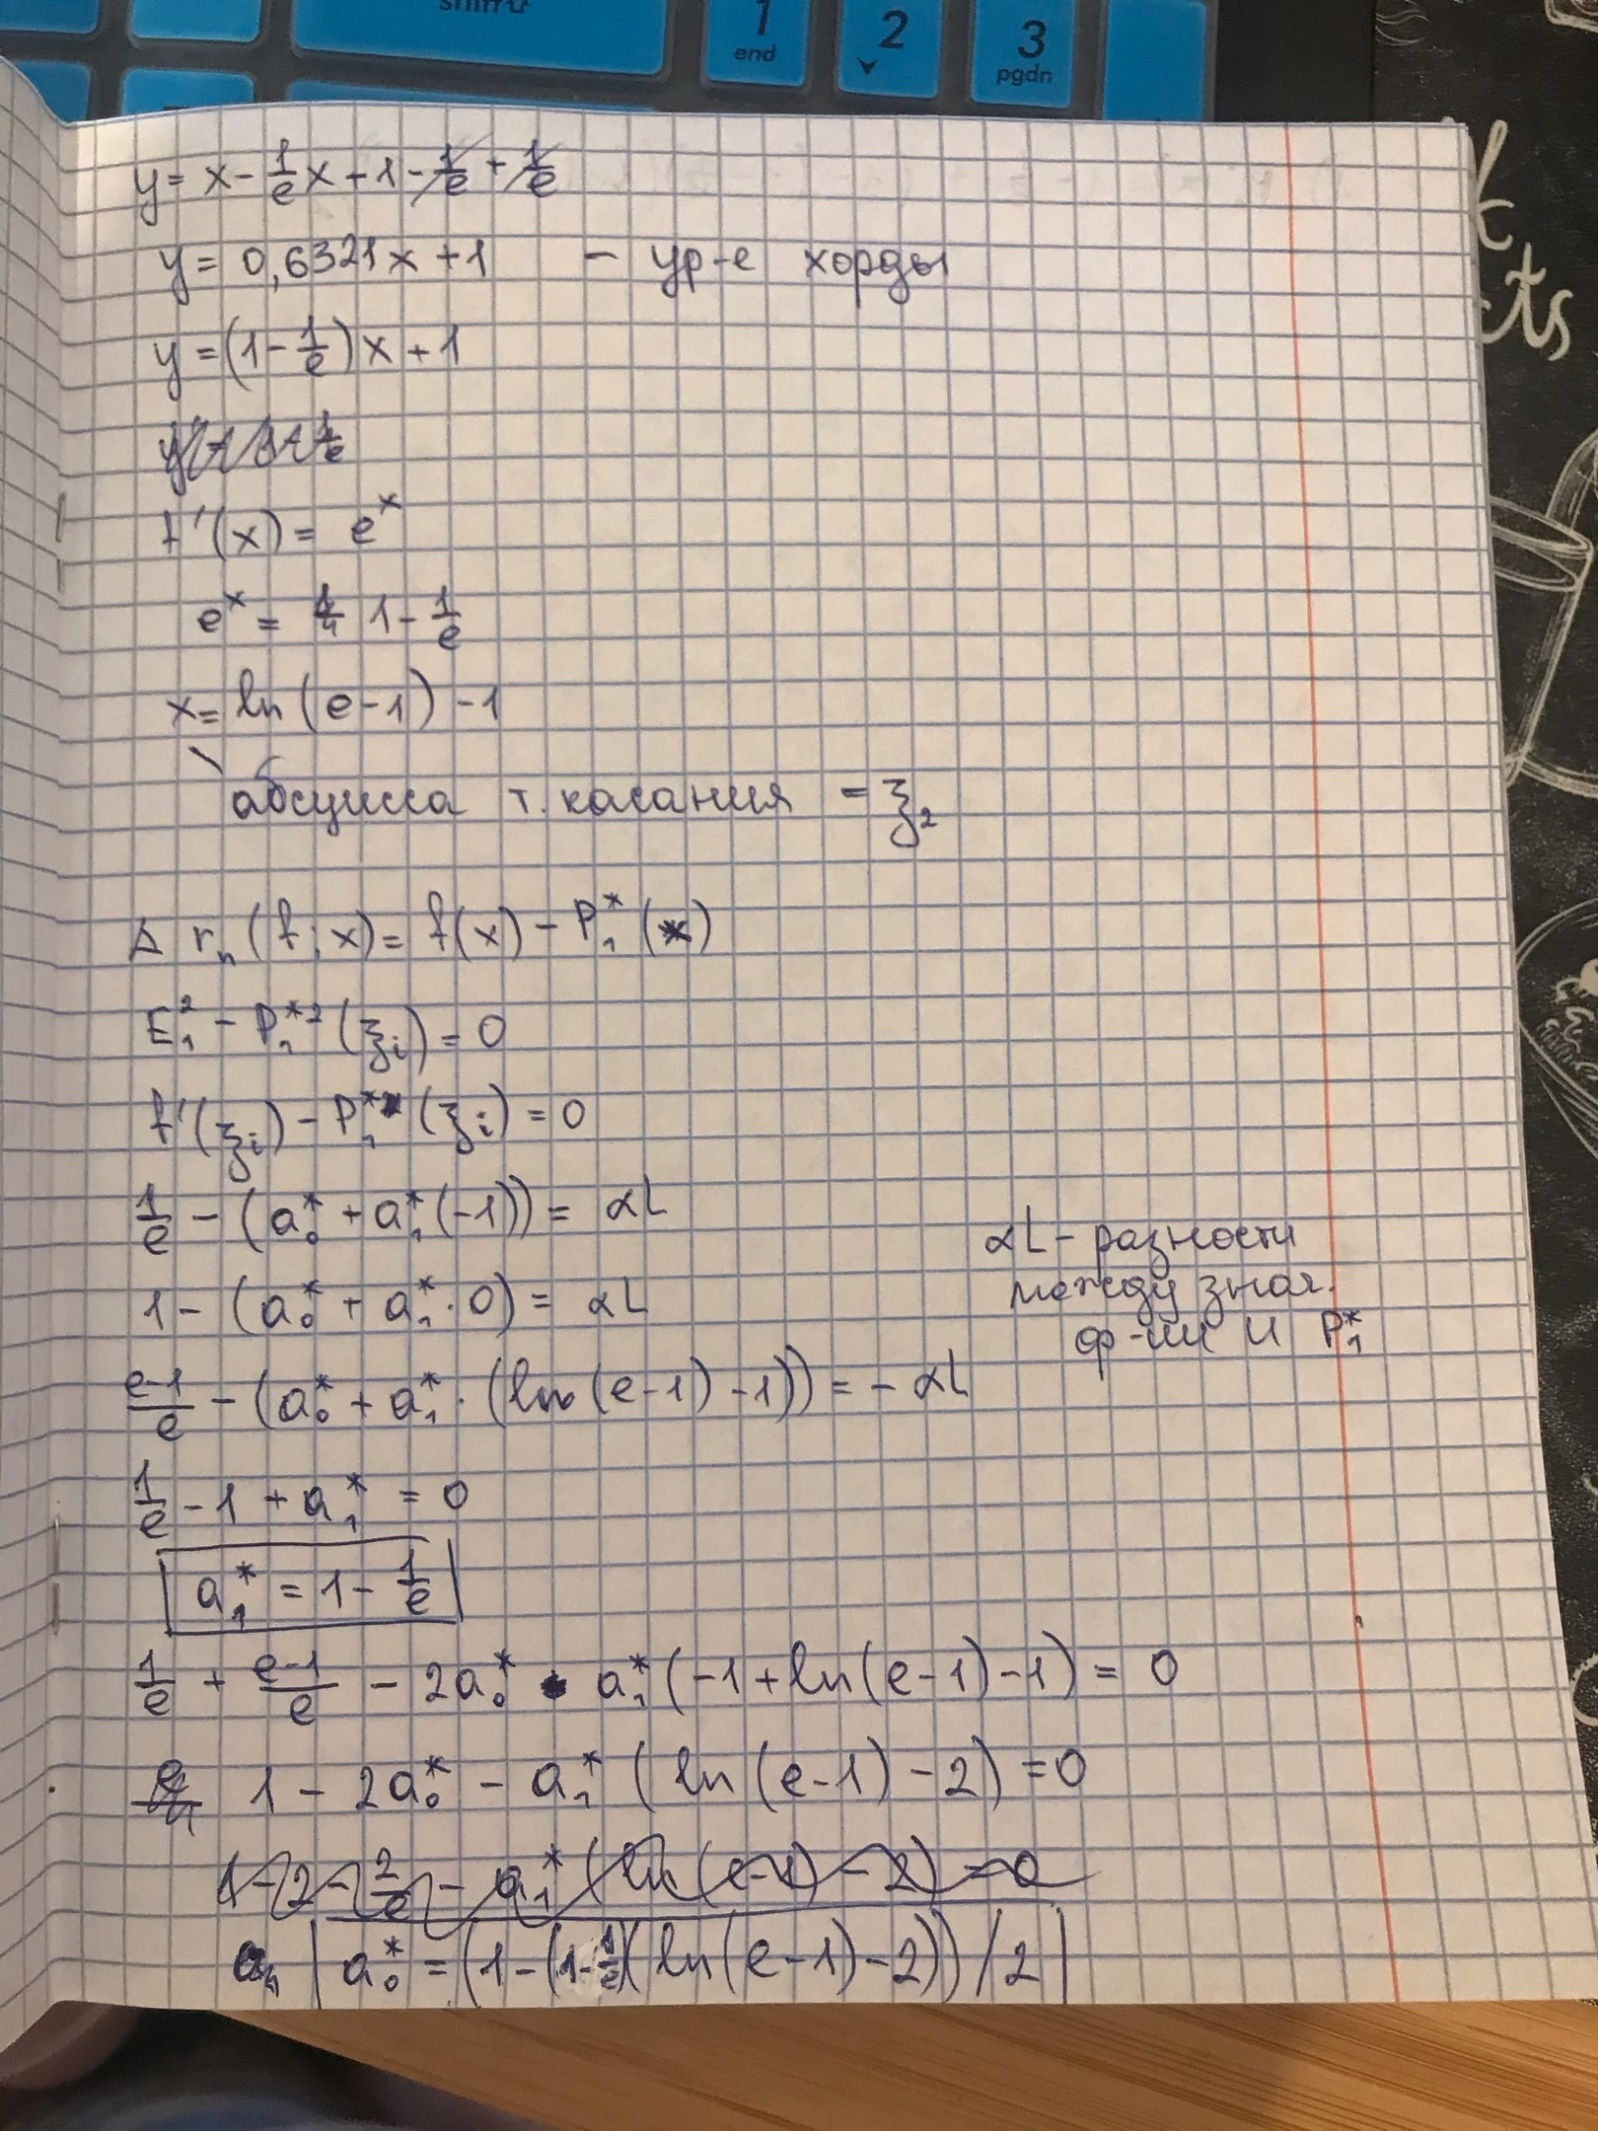 shift⇧
1
end
2
3
pgdn
y = x - 1/e x + 1 - 1/e + 1/e
y = 0,6321x + 1 - ур-е хорды
y = (1 - 1/e)x + 1
f'(x) = e^x
e^x = 1 - 1/e
x = ln(e-1) - 1
абсцисса т. касания = ξ₂
Δ rₙ(f; x) = f(x) - P₁*(x)
E₁² - P₁*²(ξᵢ) = 0
f'(ξᵢ) - P₁*'(ξᵢ) = 0
1/e - (a₀* + a₁*(-1)) = αL
αL - разности
между знач.
ф-ии и P₁*
1 - (a₀* + a₁*·0) = αL
(e-1)/e - (a₀* + a₁*·(ln(e-1) - 1)) = - αL
1/e - 1 + a₁* = 0
a₁* = 1 - 1/e
1/e + (e-1)/e - 2a₀* - a₁*(-1 + ln(e-1) - 1) = 0
1 - 2a₀* - a₁*(ln(e-1) - 2) = 0
1 - 2 - 2/e - a₁*(ln(e-1) - 2) = 0
a₀* = (1 - (1 - 1/e)(ln(e-1) - 2))/2